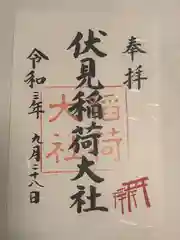 奉拝
伏見稲荷大社
令和三年 九月二十八日
稲荷
大社